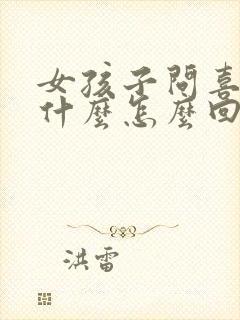 女孩子問喜
什麼怎麼回
洪雷